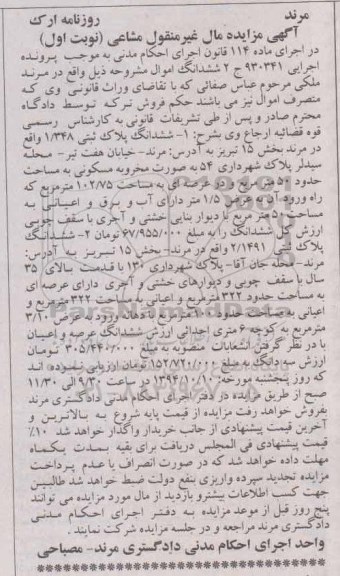 مرند روزنامه ارک
آگهی مزایده مال غیرمنقول مشاعی (نوبت اول)
در اجرای ماده ۱۱۴ قانون اجرای احکام مدنی به موجب پرونده
اجرایی ۹۳۰۳۴۱ ج ۲ ششدانگ اموال مشروحه ذیل واقع در مرند
ملکی مرحوم عباس صفائی که با تقاضای وراث قانونی وی که
متصرف اموال نیز می باشند حکم فروش ترکه توسط دادگاه
محترم صادر و پس از طی تشریفات قانونی به کارشناس رسمی
قوه قضائیه ارجاع وی بشرح: ۱- ششدانگ پلاک ثبتی ۱/۳۴۸ واقع
در مرند بخش ۱۵ تبریز به آدرس: مرند- خیابان هفت تیر- محله
سیدلر پلاک شهرداری ۵۴ به صورت مخروبه مسکونی به مساحت
حدود ۵۰ متر مربع و در عرصه ای به مساحت ۱۰۲/۷۵ مترمربع که
راه ورود آن به عرض ۱/۵ متر دارای آب و برق و اعیانی به
مساحت ۵۰ متر مربع با دیوار بنایی خشتی و آجری با سقف چوبی
ارزش کل ششدانگ را به مبلغ ۶۷/۹۵۵/۰۰۰ تومان ۲- ششدانگ
پلاک ثبتی ۲/۱۴۹۱ واقع در مرند- بخش ۱۵ تبریز به آدرس:
مرند- محله جان آقا- پلاک شهرداری ۱۳۰ با قدمت بالای ۳۵
سال با سقف چوبی و دیوارهای خشتی و آجری دارای عرصه ای
به مساحت حدود ۳۲۲ مترمربع و اعیانی به مساحت ۳۲۲ مترمربع و
اعیانی به مساحت حدود ۱۰۰ مترمربع با دهانه ورود به عرض ۳/۱۰
مترمربع به کوچه ۶ متری احداثی ارزش ششدانگ عرصه و اعیان
با در نظر گرفتن انشعابات منصوبه به مبلغ ۳۰۵/۴۴۰/۰۰۰ تومان
ارزش سه دانگ به مبلغ ۱۵۲/۷۲۰/۰۰۰ تومان ارزیابی نموده اند
که روز پنجشنبه مورخه: ۱۳۹۴/۱۰/۱۰ در ساعت ۹/۳۰ الی ۱۱/۳۰
صبح از طریق مزایده در دفتر اجرای احکام مدنی دادگستری مرند
بفروش خواهد رفت مزایده از قیمت پایه شروع به بالاترین و
آخرین قیمت پیشنهادی از جانب خریدار واگذار خواهد شد ۱۰٪
قیمت پیشنهادی فی المجلس دریافت برای بقیه بمدت یکماه
مهلت داده خواهد شد که در صورت انصراف یا عدم پرداخت
مزایده تجدید سپرده واریزی بنفع دولت ضبط خواهد شد طالبین
جهت کسب اطلاعات بیشترو بازدید از مال مورد مزایده می توانند
پنج روز قبل از موعد مزایده به دفتر اجرای احکام مدنی
دادگستری مرند مراجعه و در جلسه مزایده شرکت نمایند.
واحد اجرای احکام مدنی دادگستری مرند- مصباحی